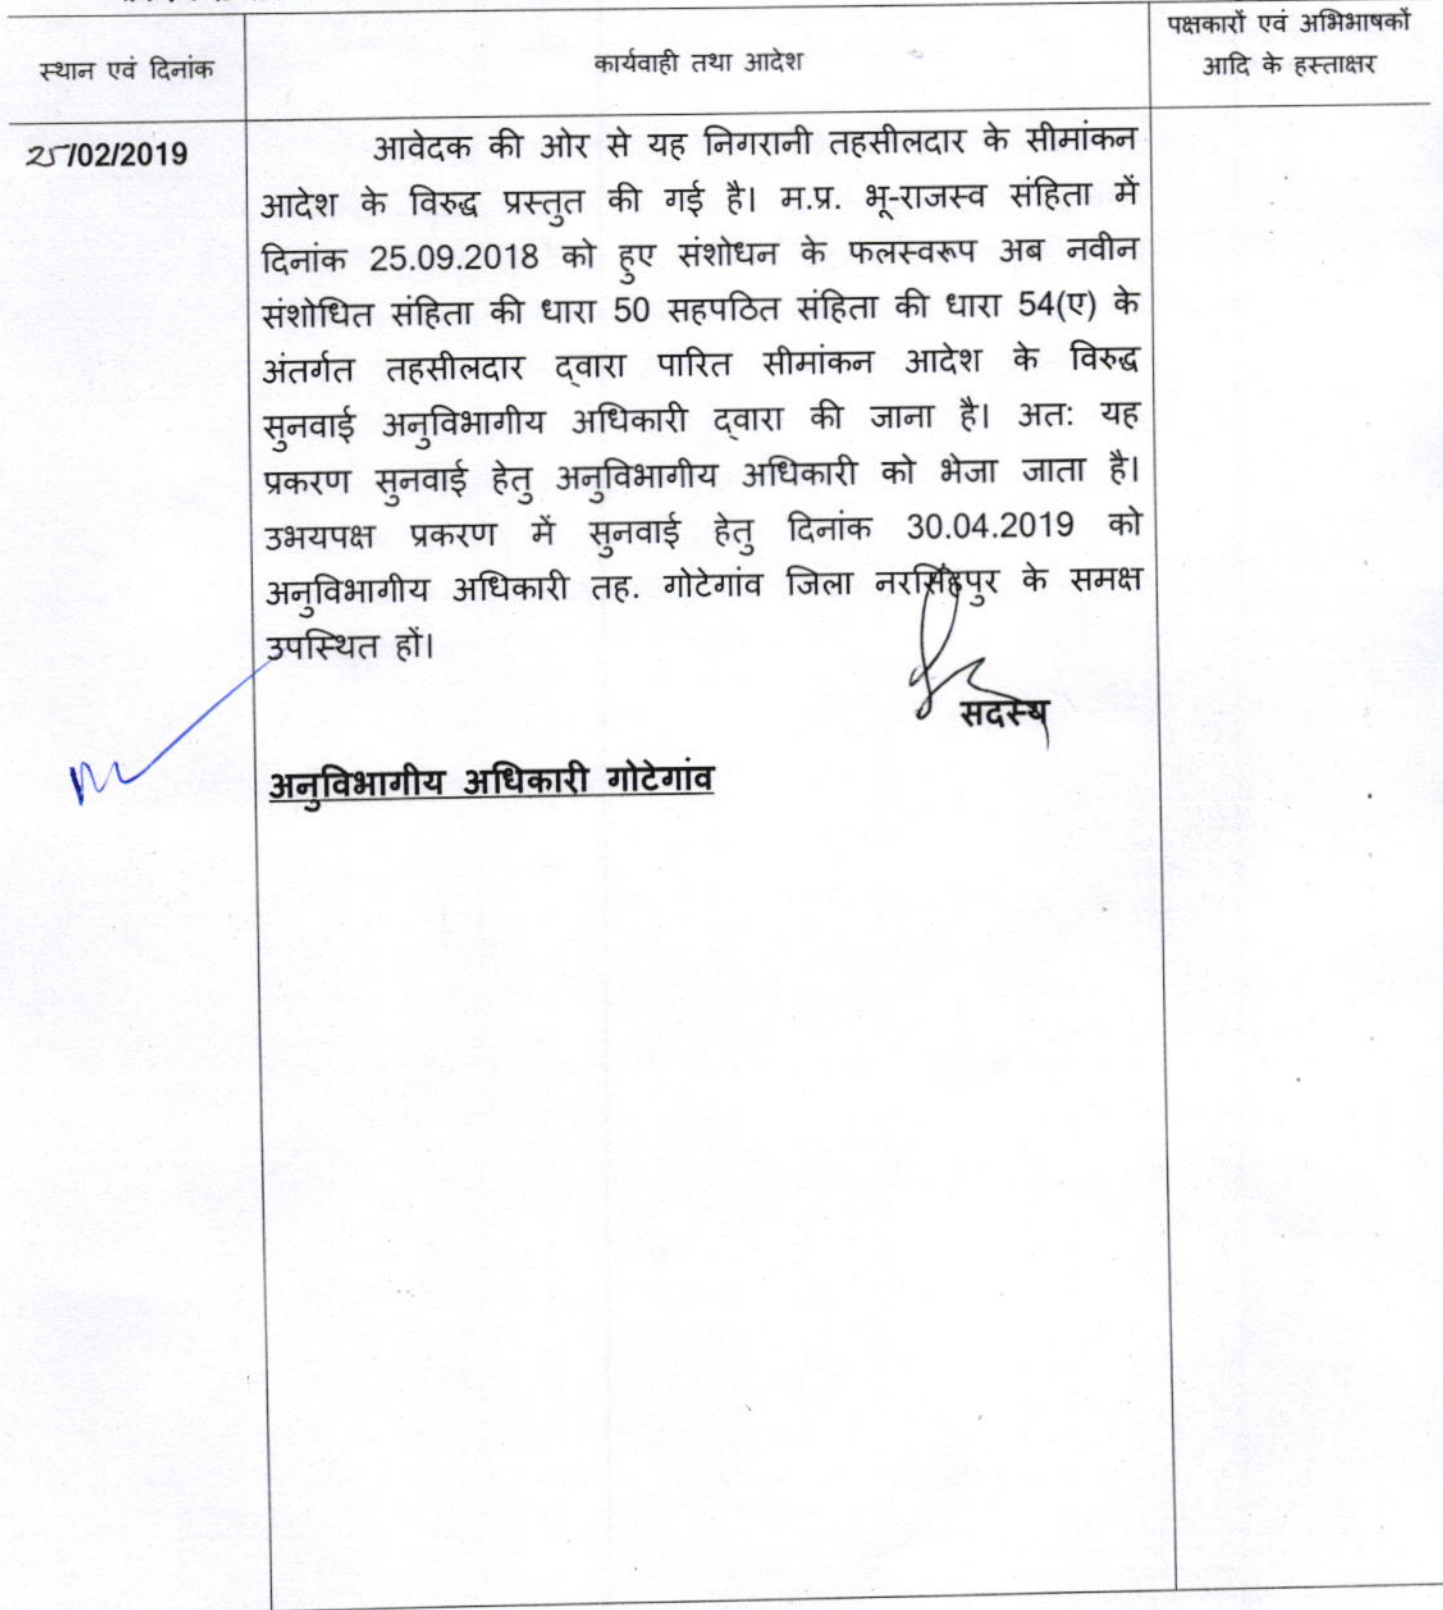 स्थान एवं दिनांक
कार्यवाही तथा आदेश
पक्षकारों एवं अभिभाषकों
आदि के हस्ताक्षर
25/02/2019
आवेदक की ओर से यह निगरानी तहसीलदार के सीमांकन
आदेश के विरुद्ध प्रस्तुत की गई है। म.प्र. भू-राजस्व संहिता में
दिनांक 25.09.2018 को हुए संशोधन के फलस्वरूप अब नवीन
संशोधित संहिता की धारा 50 सहपठित संहिता की धारा 54(ए) के
अंतर्गत तहसीलदार द्वारा पारित सीमांकन आदेश के विरुद्ध
सुनवाई अनुविभागीय अधिकारी द्वारा की जाना है। अत: यह
प्रकरण सुनवाई हेतु अनुविभागीय अधिकारी को भेजा जाता है।
उभयपक्ष प्रकरण में सुनवाई हेतु दिनांक 30.04.2019 को
अनुविभागीय अधिकारी तह. गोटेगांव जिला नरसिंहपुर के समक्ष
उपस्थित हों।
सदस्य
अनुविभागीय अधिकारी गोटेगांव